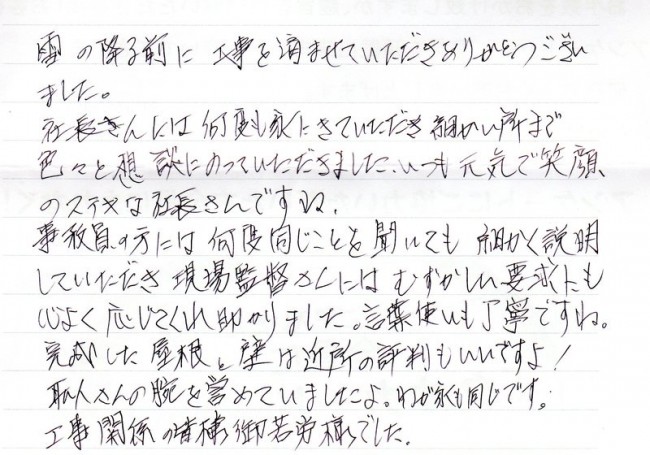 雪の降る前に 工事を済ませていただきありがとうござい
ました。
社長さんには何度も家にきていただき細かい所まで
色々と想談にのっていただきました、いつも元気で笑顔
のステキな社長さんですね。
事務員の方には何度同じことを聞いても 細かく説明
していただき 現場監督さんには むずかしい要求にも
心よく応じてくれ助かりました。言葉使いも丁寧ですね。
完成した屋根と壁は近所の評判もいいですよ!
職人さんの腕を誉めていましたよ。わが家も同じです。
工事関係の皆様御苦労様でした。